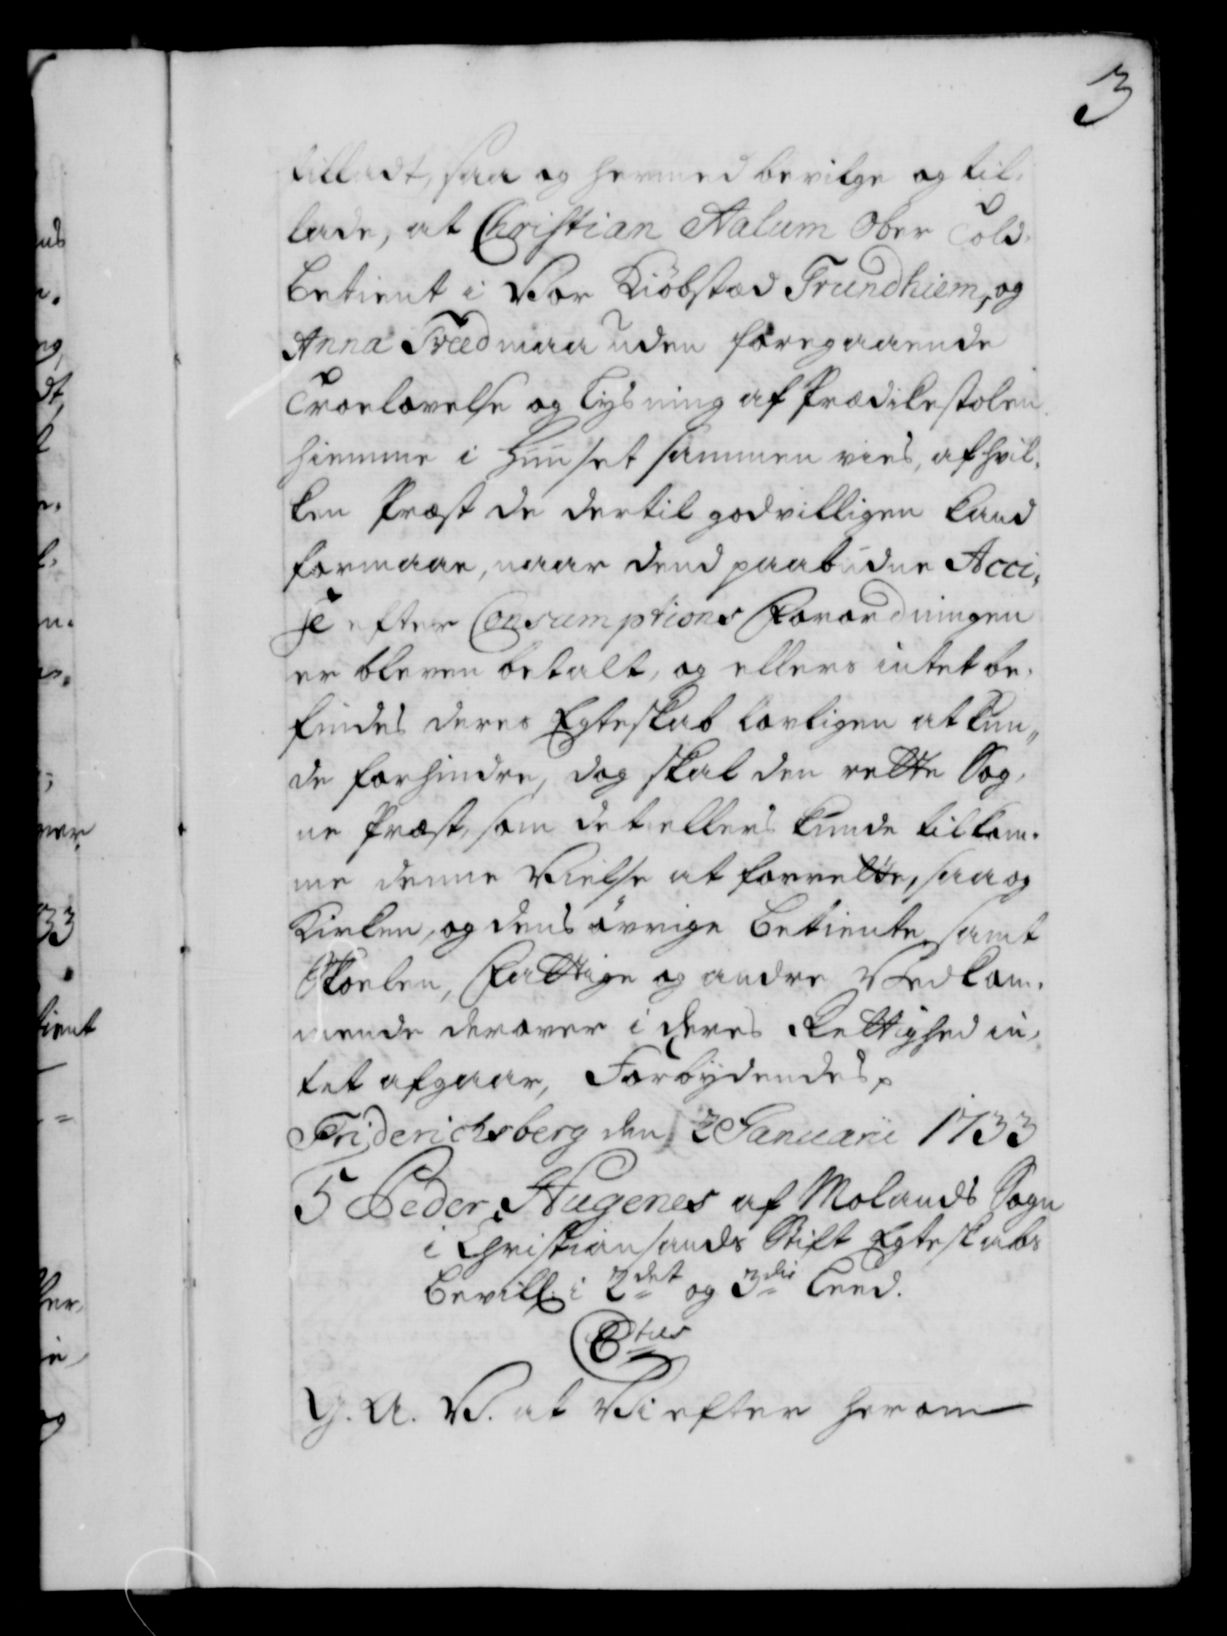 3
tilladt, saa og hermed bevilge og til-
lade, at Christian Aalum Ober Told-
Betient i Vor Kiöbstad Trundhiem, og
Anna Treed maa uden foregaaende
Troelovelse og Lysning af Prædikestolen
hiemme i Huuset sammen vies, af hvil-
ken Præst de dertil godvilligen kand
formaae, naar dend paabudne Acci-
se efter Consumptions Forordningen
er bleven betalt, og ellers intet be-
findes deres Egteskab lovligen at kun„
de forhindre, dog skal den rette Sog-
ne Præst, som det ellers kunde tilkom-
me denne Vielse at forrette, saa og
Kirken, og dens övrige Betiente samt
Skoelen, Fattige og andre Vedkom-
mende derover i deres Rettighed in-
tet afgaar, Forbydendes
Friderichsberg den 2 Januarii 1733
5 Peder Augenes af Molands Sogn
i Christiansands Stift Egteskabs
Bevill: i 2det og 3die Leed.
C 6tus
G. A. V. at Vi efter herom